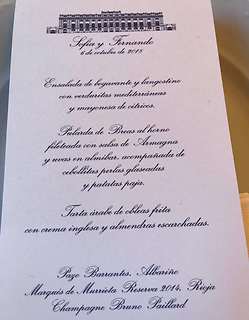 Sofía y Fernando
6 de octubre de 2018
Ensalada de bogavante y langostino
con verduritas mediterráneas
y mayonesa de cítricos.
Pularda de Bresse al horno
fileteada con salsa de Armagnac
y uvas en almíbar, acompañada de
cebollitas perlas glaseadas
y patatas paja.
Tarta árabe de obleas frita
con crema inglesa y almendras escarchadas.
Pazo Barrantes. Albariño
Marqués de Murrieta Reserva 2014. Rioja
Champagne Bruno Paillard